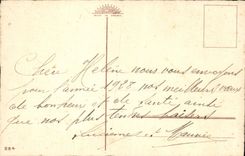 Chère Hélène nous vous envoyons
pour l'année 1988 nos meilleurs vœux
de bonheur et de santé ainsi
que nos plus tendres baisers
et Maurice
224